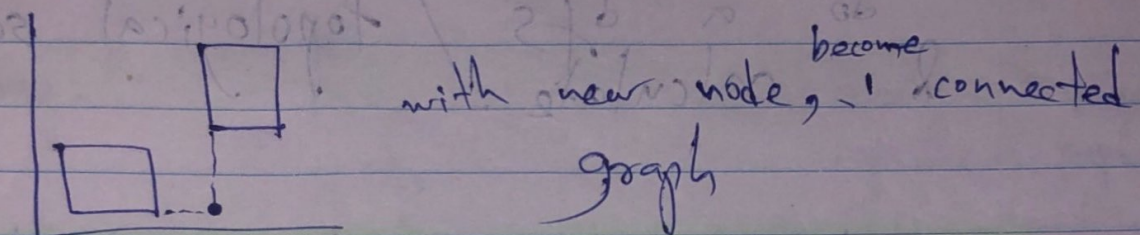 with new node, become 1 connected
graph